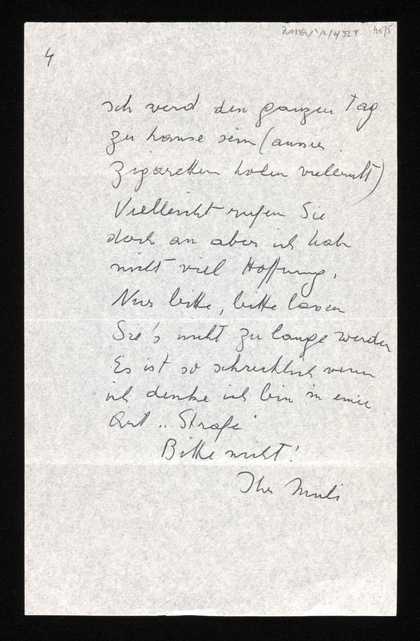 4
ich werd den ganzen Tag
zu hause sein (ausser
Zigaretten holen vielleicht)
Vielleicht rufen Sie
doch an aber ich hab
nicht viel Hoffnung.
Nur bitte, bitte lassen
Sie's nicht zu lange werden
Es ist so schrecklich wenn
ich denke ich bin in einer
Art "Strafe"
Bitte nicht!
Ihr